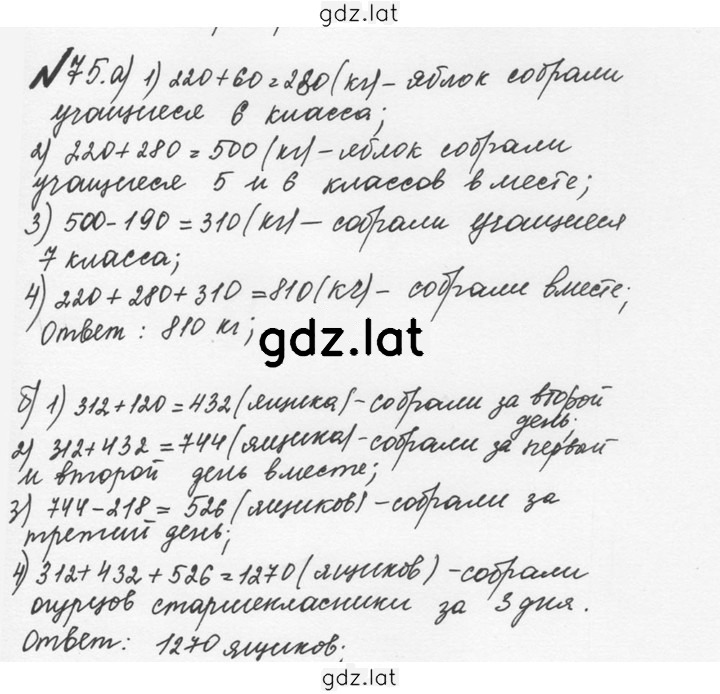 gdz.lat
№75.а) 1) 220+60=280(кг) - яблок собрали
учащиеся 6 класса;
2) 220+280=500(кг) - яблок собрали
учащиеся 5 и 6 классов вместе;
3) 500-190=310(кг) - собрали учащиеся
7 класса;
4) 220+280+310=810(кг) - собрали вместе;
Ответ: 810 кг;
gdz.lat
б) 1) 312+120=432(ящика) - собрали за второй
день;
2) 312+432=744(ящика) - собрали за первый
и второй день вместе;
3) 744-218=526(ящиков) - собрали за
третий день;
4) 312+432+526=1270(ящиков) - собрали
огурцов старшекласники за 3 дня.
Ответ: 1270 ящиков;
gdz.lat